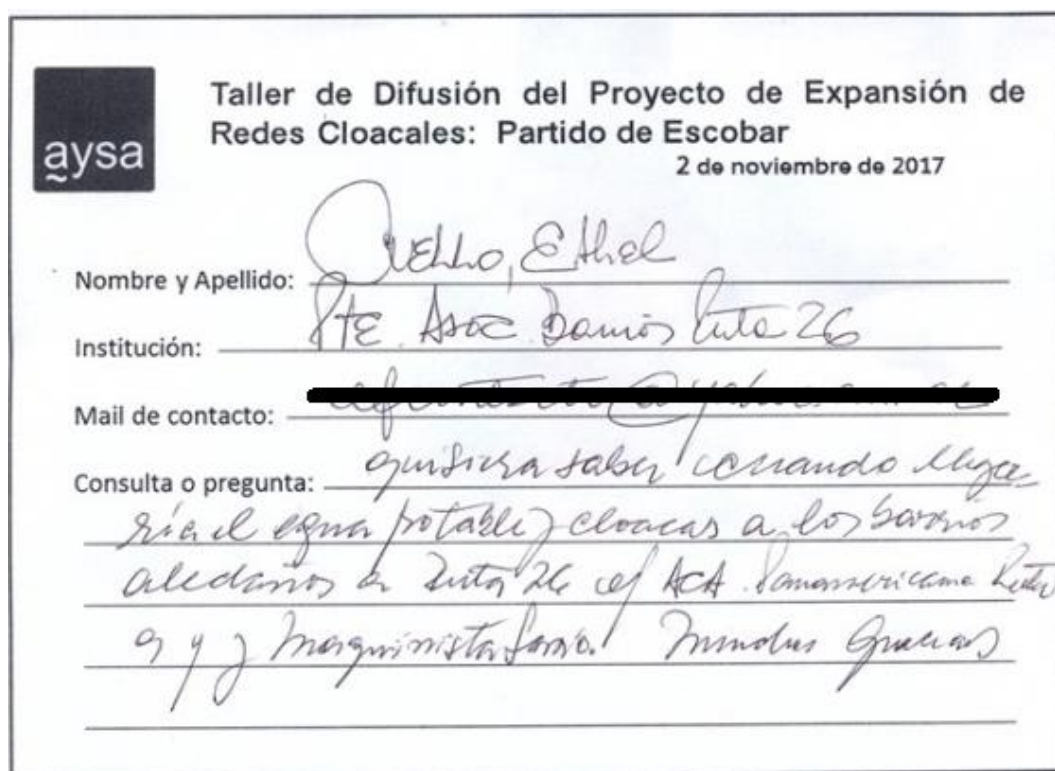 aysa
Taller de Difusión del Proyecto de Expansión de
Redes Cloacales: Partido de Escobar
2 de noviembre de 2017
Nombre y Apellido: Ethel
Institución: Pte. Asoc. Barrios Ruta 26
Mail de contacto:
Consulta o pregunta: quisiera saber cuando llega-
ría el agua potable y cloacas a los barrios
aledaños a Ruta 26 e/ ACA Panamericana Ruta
9 y Maquinista Savio. Muchas Gracias